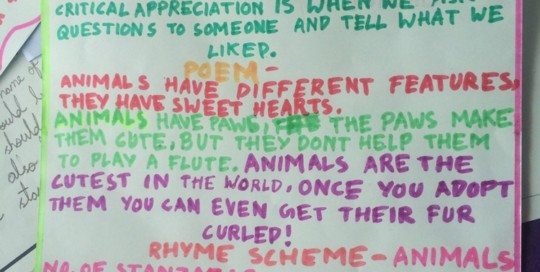 CRITICAL APPRECIATION IS WHEN WE ASK
QUESTIONS TO SOMEONE AND TELL WHAT WE
LIKED.
POEM -
ANIMALS HAVE DIFFERENT FEATURES,
THEY HAVE SWEET HEARTS.
ANIMALS HAVE PAWS, THE PAWS MAKE
THEM CUTE, BUT THEY DONT HELP THEM
TO PLAY A FLUTE. ANIMALS ARE THE
CUTEST IN THE WORLD, ONCE YOU ADOPT
THEM YOU CAN EVEN GET THEIR FUR
CURLED!
RHYME SCHEME - ANIMALS
NO. OF STANZAS
name of
should
also